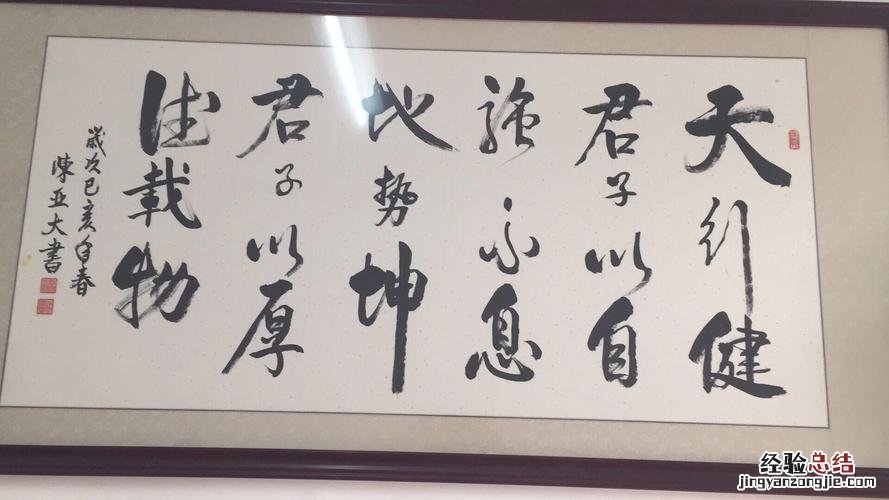 天行健
君子以自
強不息
地势坤
君子以厚
德載物
歲次己亥年春
陳亚大書
经验总结
jingyanzongjie.com